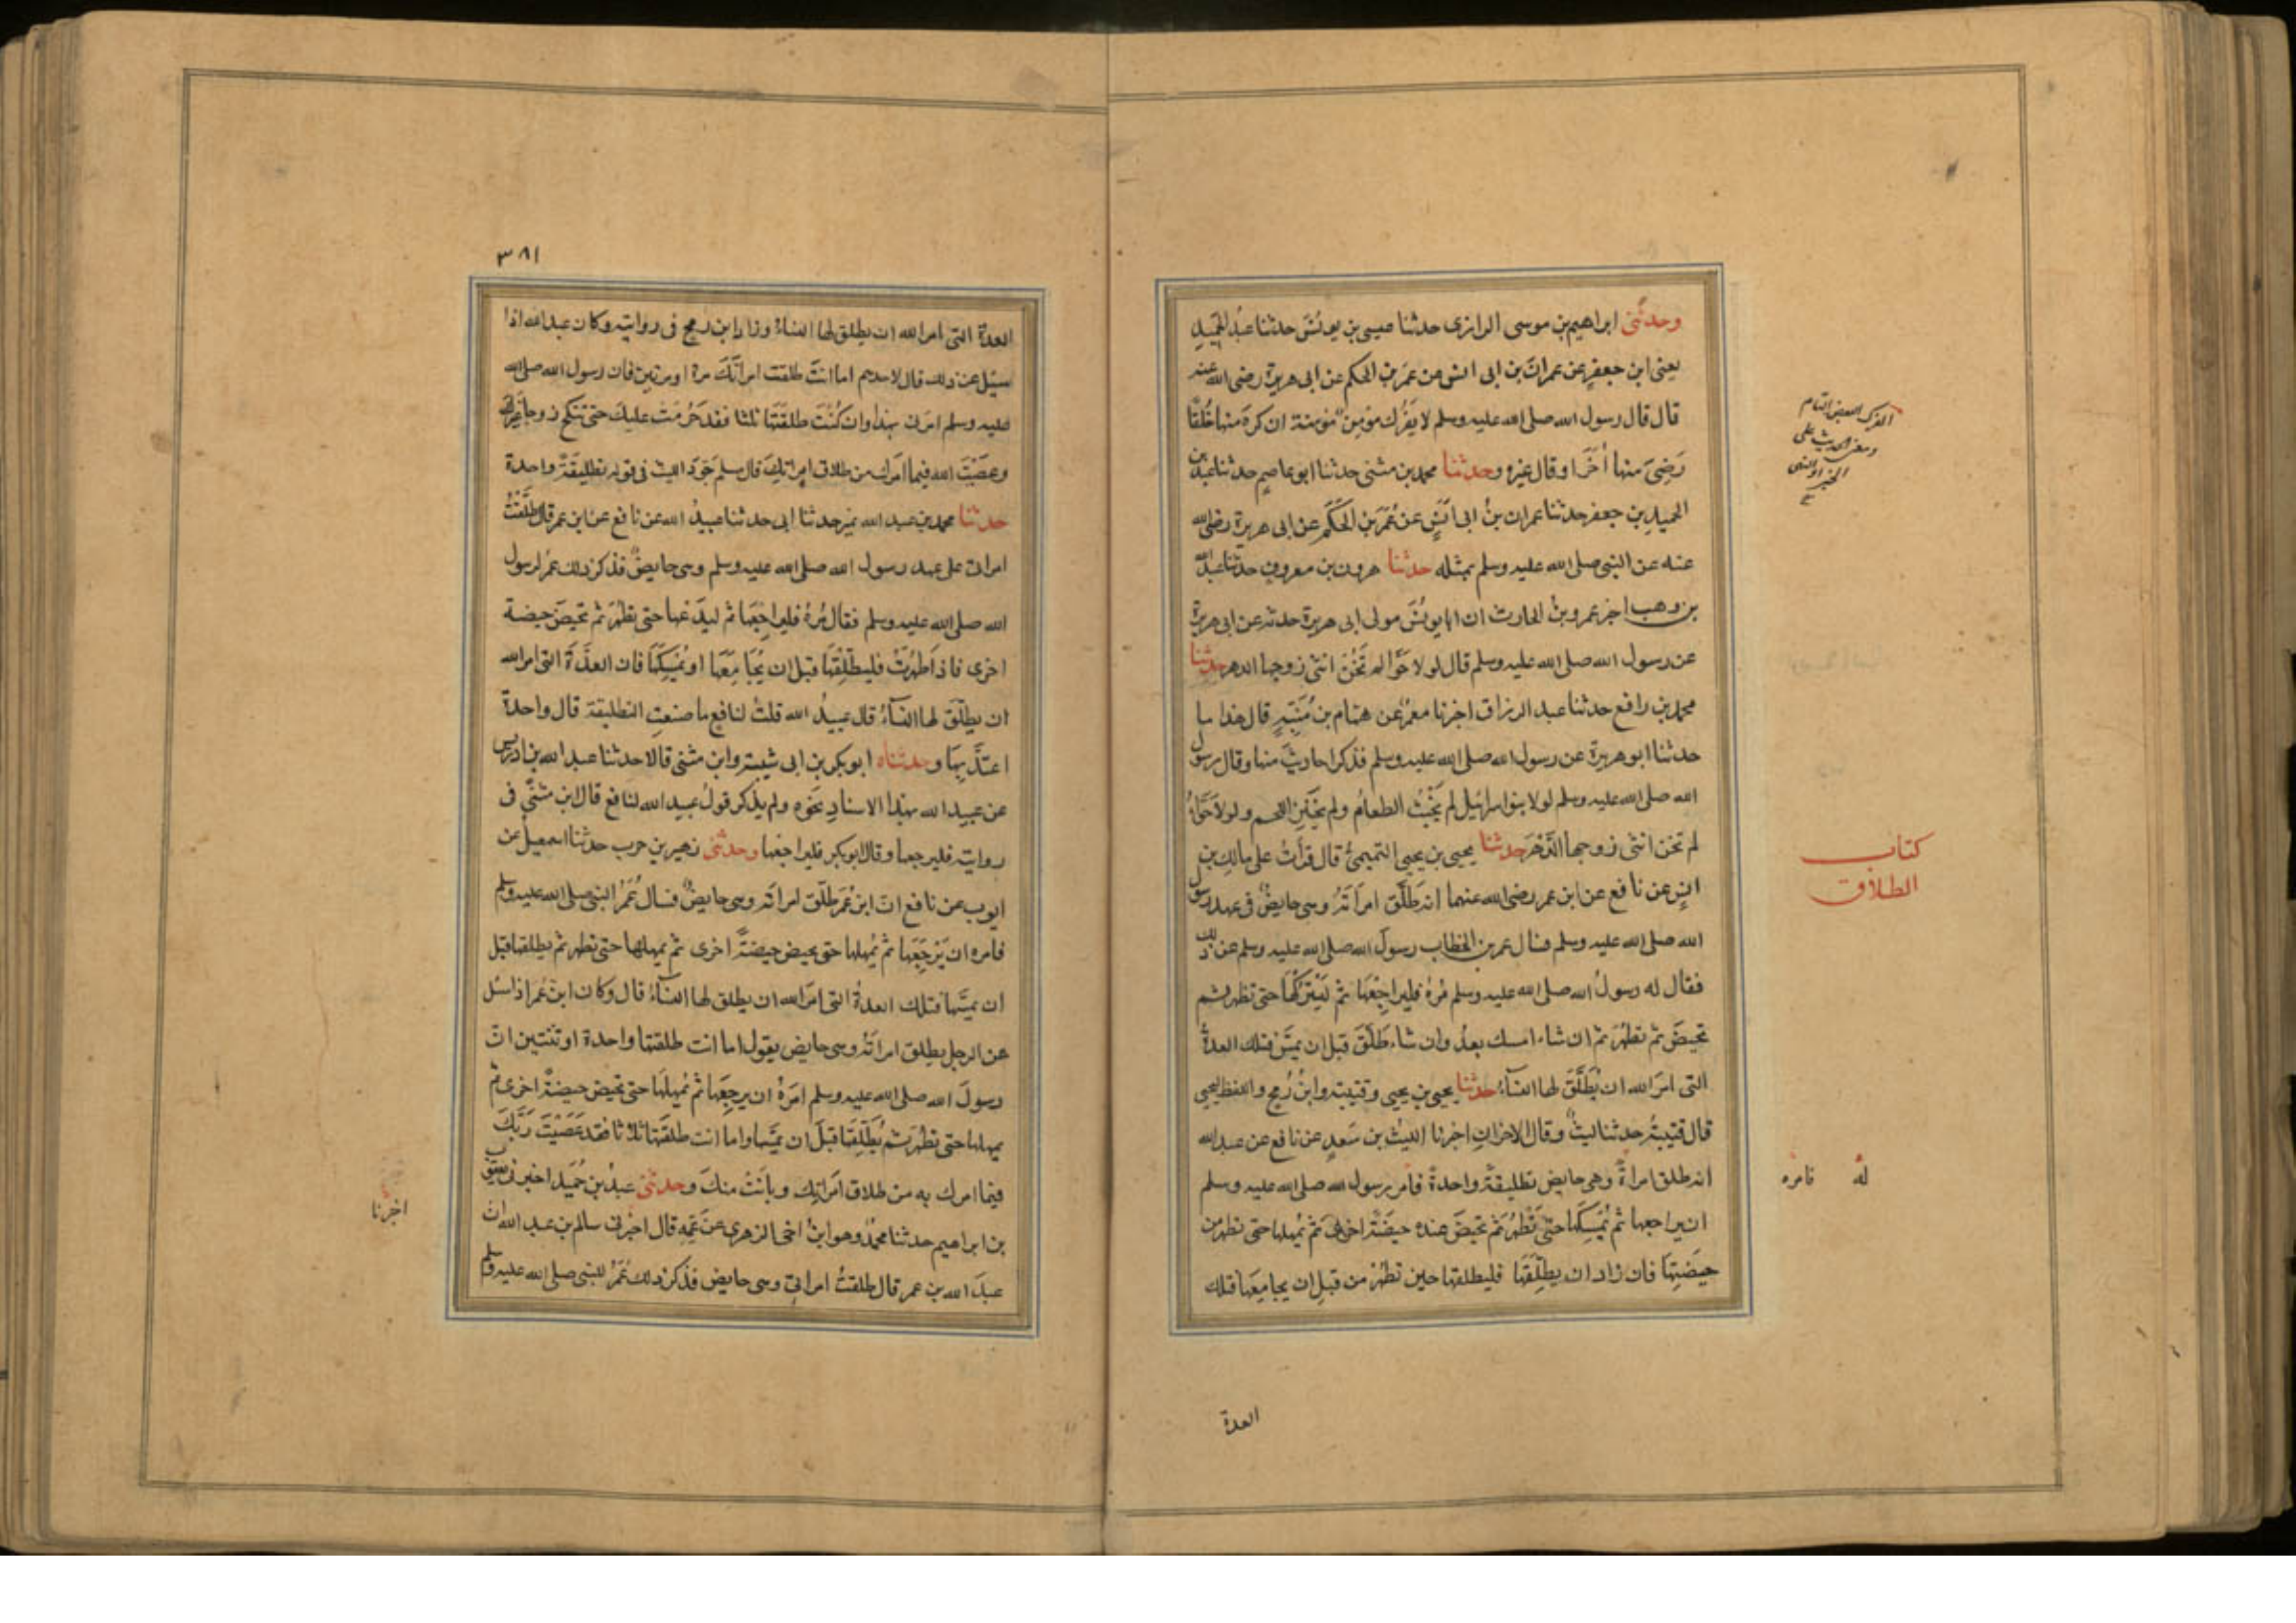 وحدثنى ابراهيم بن موسى الرازى حدثنا عيسى بن يونس حدثنا عبد الحميد
يعنى ابن جعفر عن عمران بن ابى انس عن عمر بن الحكم عن ابى هريرة رضى الله عنه
قال قال رسول الله صلى الله عليه وسلم لا يفرك مؤمن مؤمنة ان كره منها خلقا
رضى منها أخرا وقال غيره وحدثنا محمد بن مثنى حدثنا ابو عاصم حدثنا عبد
الحميد بن جعفر حدثنا عمران بن ابى انس عن عمر بن الحكم عن ابى هريرة رضى الله
عنه عن النبى صلى الله عليه وسلم بمثله حدثنا هرون بن معروف حدثنا عبد الله
بن وهب اخبر عمرو بن الحارث ان ابا يونس مولى ابى هريرة حدثه عن ابى هريرة
عن رسول الله صلى الله عليه وسلم قال لولا حوا لم تخن انثى زوجها الدهر حدثنا
محمد بن رافع حدثنا عبد الرزاق اخبرنا معمر عن همام بن منبه قال هذا ما
حدثنا ابو هريرة عن رسول الله صلى الله عليه وسلم فذكر احاديث منها وقال رسول
الله صلى الله عليه وسلم لولا بنو اسرائيل لم يخبث الطعام ولم يخنز اللحم ولولا حوّاء
لم تخن انثى زوجها الدهر حدثنا يحيى بن يحيى التميمى قال قرأت على مالك بن
انس عن نافع عن ابن عمر رضى الله عنهما انه طلق امرأته وهى حايض فى عهد رسول
الله صلى الله عليه وسلم فسال عمر بن الخطاب رسول الله صلى الله عليه وسلم عن ذلك
فقال له رسول الله صلى الله عليه وسلم مره فليراجعها ثم ليتركها حتى تطهر ثم
تحيض ثم تطهر ثم ان شاء امسك بعد وان شاء طلق قبل ان يمس فتلك العدة
التى امر الله ان يطلق لها النساء حدثنا يحيى بن يحيى وقتيبة وابن رمح واللفظ ليحيى
قال قتيبة حدثنا ليث وقال الاخران اخبرنا الليث بن سعد عن نافع عن عبد الله
انه طلق امراة وهى حايض تطليقة واحدة فامر رسول الله صلى الله عليه وسلم
ان يراجعها ثم يمسكها حتى تطهر ثم تحيض عنده حيضة اخرى ثم يمهلها حتى تطهر من
حيضتها فان زاد ان يطلقها فليطلقها حين تطهر من قبل ان يجامعها فتلك
العدة
الفرك البغض التام
ومعنى الحديث على
الخبر او النهى
كتاب
الطلاق
له فامره
٣٨١
العدة التى امر الله ان يطلق لها النساء وزاد ابن رمح فى روايته وكان عبد الله اذا
سئل عن ذلك قال لاحدهم اما انت طلقت امرأتك مرة او مرتين فان رسول الله صلى الله
عليه وسلم امرنى بهذا وان كنت طلقتها ثلثا فقد حرمت عليك حتى تنكح زوجا غيرك
وعصيت الله فيما امرك من طلاق امراتك قال مسلم جود الليث فى قوله تطليقة واحدة
حدثنا محمد بن عبد الله نمير حدثنا ابى حدثنا عبيد الله عن نافع عن ابن عمر قال طلقت
امراتى على عهد رسول الله صلى الله عليه وسلم وهى حايض فذكر ذلك عمر لرسول
الله صلى الله عليه وسلم فقال مره فليراجعها ثم ليدعها حتى تطهر ثم تحيض حيضة
اخرى فاذا طهرت فليطلقها قبل ان يجامعها او يمسكها فان العدة التى امر الله
ان يطلق لها النساء قال عبيد الله قلت لنافع ما صنعت التطليقة قال واحدة
اعتد بها وحدثناه ابو بكر بن ابى شيبة وابن مثنى قالا حدثنا عبد الله بن ادريس
عن عبيد الله بهذا الاسناد نحوه ولم يذكر قول عبيد الله لنافع قال ابن مثنى فى
روايته فليرجعها وقال ابو بكر فليراجعها وحدثنى زهير بن حرب حدثنا اسمعيل عن
ايوب عن نافع ان ابن عمر طلق امراته وهى حايض فسال عمر النبى صلى الله عليه وسلم
فامره ان يرجعها ثم يمهلها حتى يحيض حيضة اخرى ثم يمهلها حتى تطهر ثم يطلقها قبل
ان يمسها فتلك العدة التى امر الله ان يطلق لها النساء قال وكان ابن عمر اذا سئل
عن الرجل يطلق امراته وهى حايض يقول اما انت طلقتها واحدة او ثنتين ان
رسول الله صلى الله عليه وسلم امره ان يرجعها ثم يمهلها حتى تحيض حيضة اخرى ثم
يمهلها حتى تطهر ثم يطلقها قبل ان يمسها واما انت طلقتها ثلاثا فقد عصيت ربك
فيما امرك به من طلاق امراتك وبانت منك وحدثنى عبد بن حميد اخبرنى يعقوب
بن ابراهيم حدثنا محمد وهو ابن اخى الزهرى عن عمه قال اخبرنى سالم بن عبد الله ان
عبد الله بن عمر قال طلقت امراتى وهى حايض فذكر ذلك عمر للنبى صلى الله عليه وسلم
اخبرنا